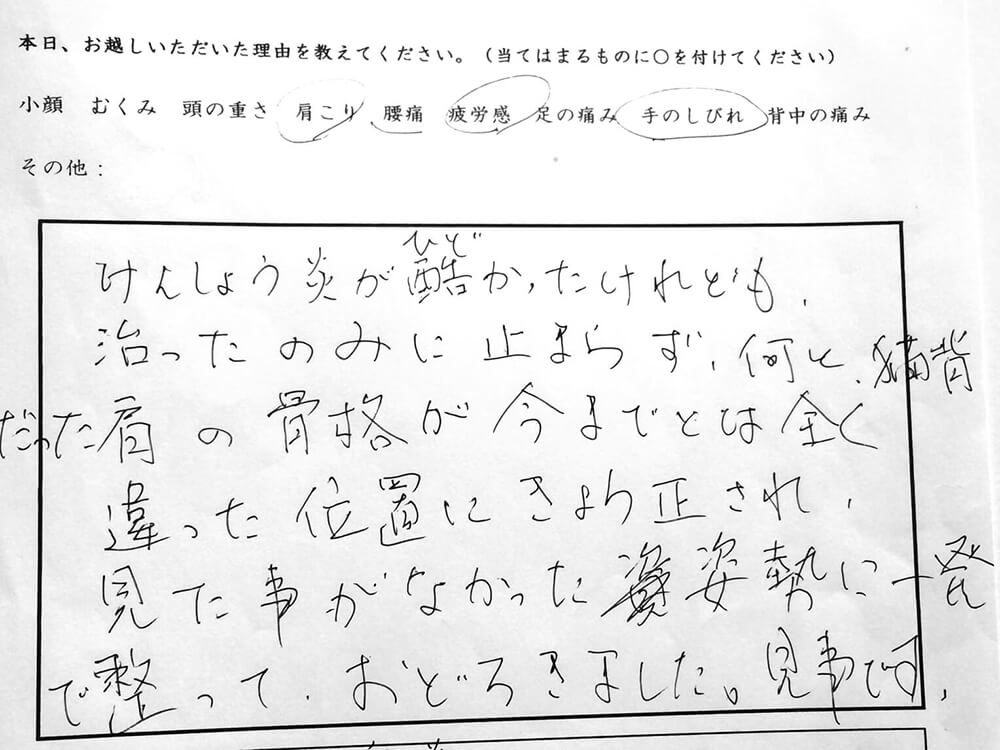 本日、お越しいただいた理由を教えてください。（当てはまるものに〇を付けてください）
小顔　むくみ　頭の重さ　肩こり　腰痛　疲労感　足の痛み　手のしびれ　背中の痛み
その他：
けんしょう炎が酷(ひど)かったけれども、
治ったのみに止まらず、何と、猫背
だった肩の骨格が今までとは全く
違った位置にきょう正され、
見た事がなかった姿勢に一発
で整って、おどろきました。見事です、